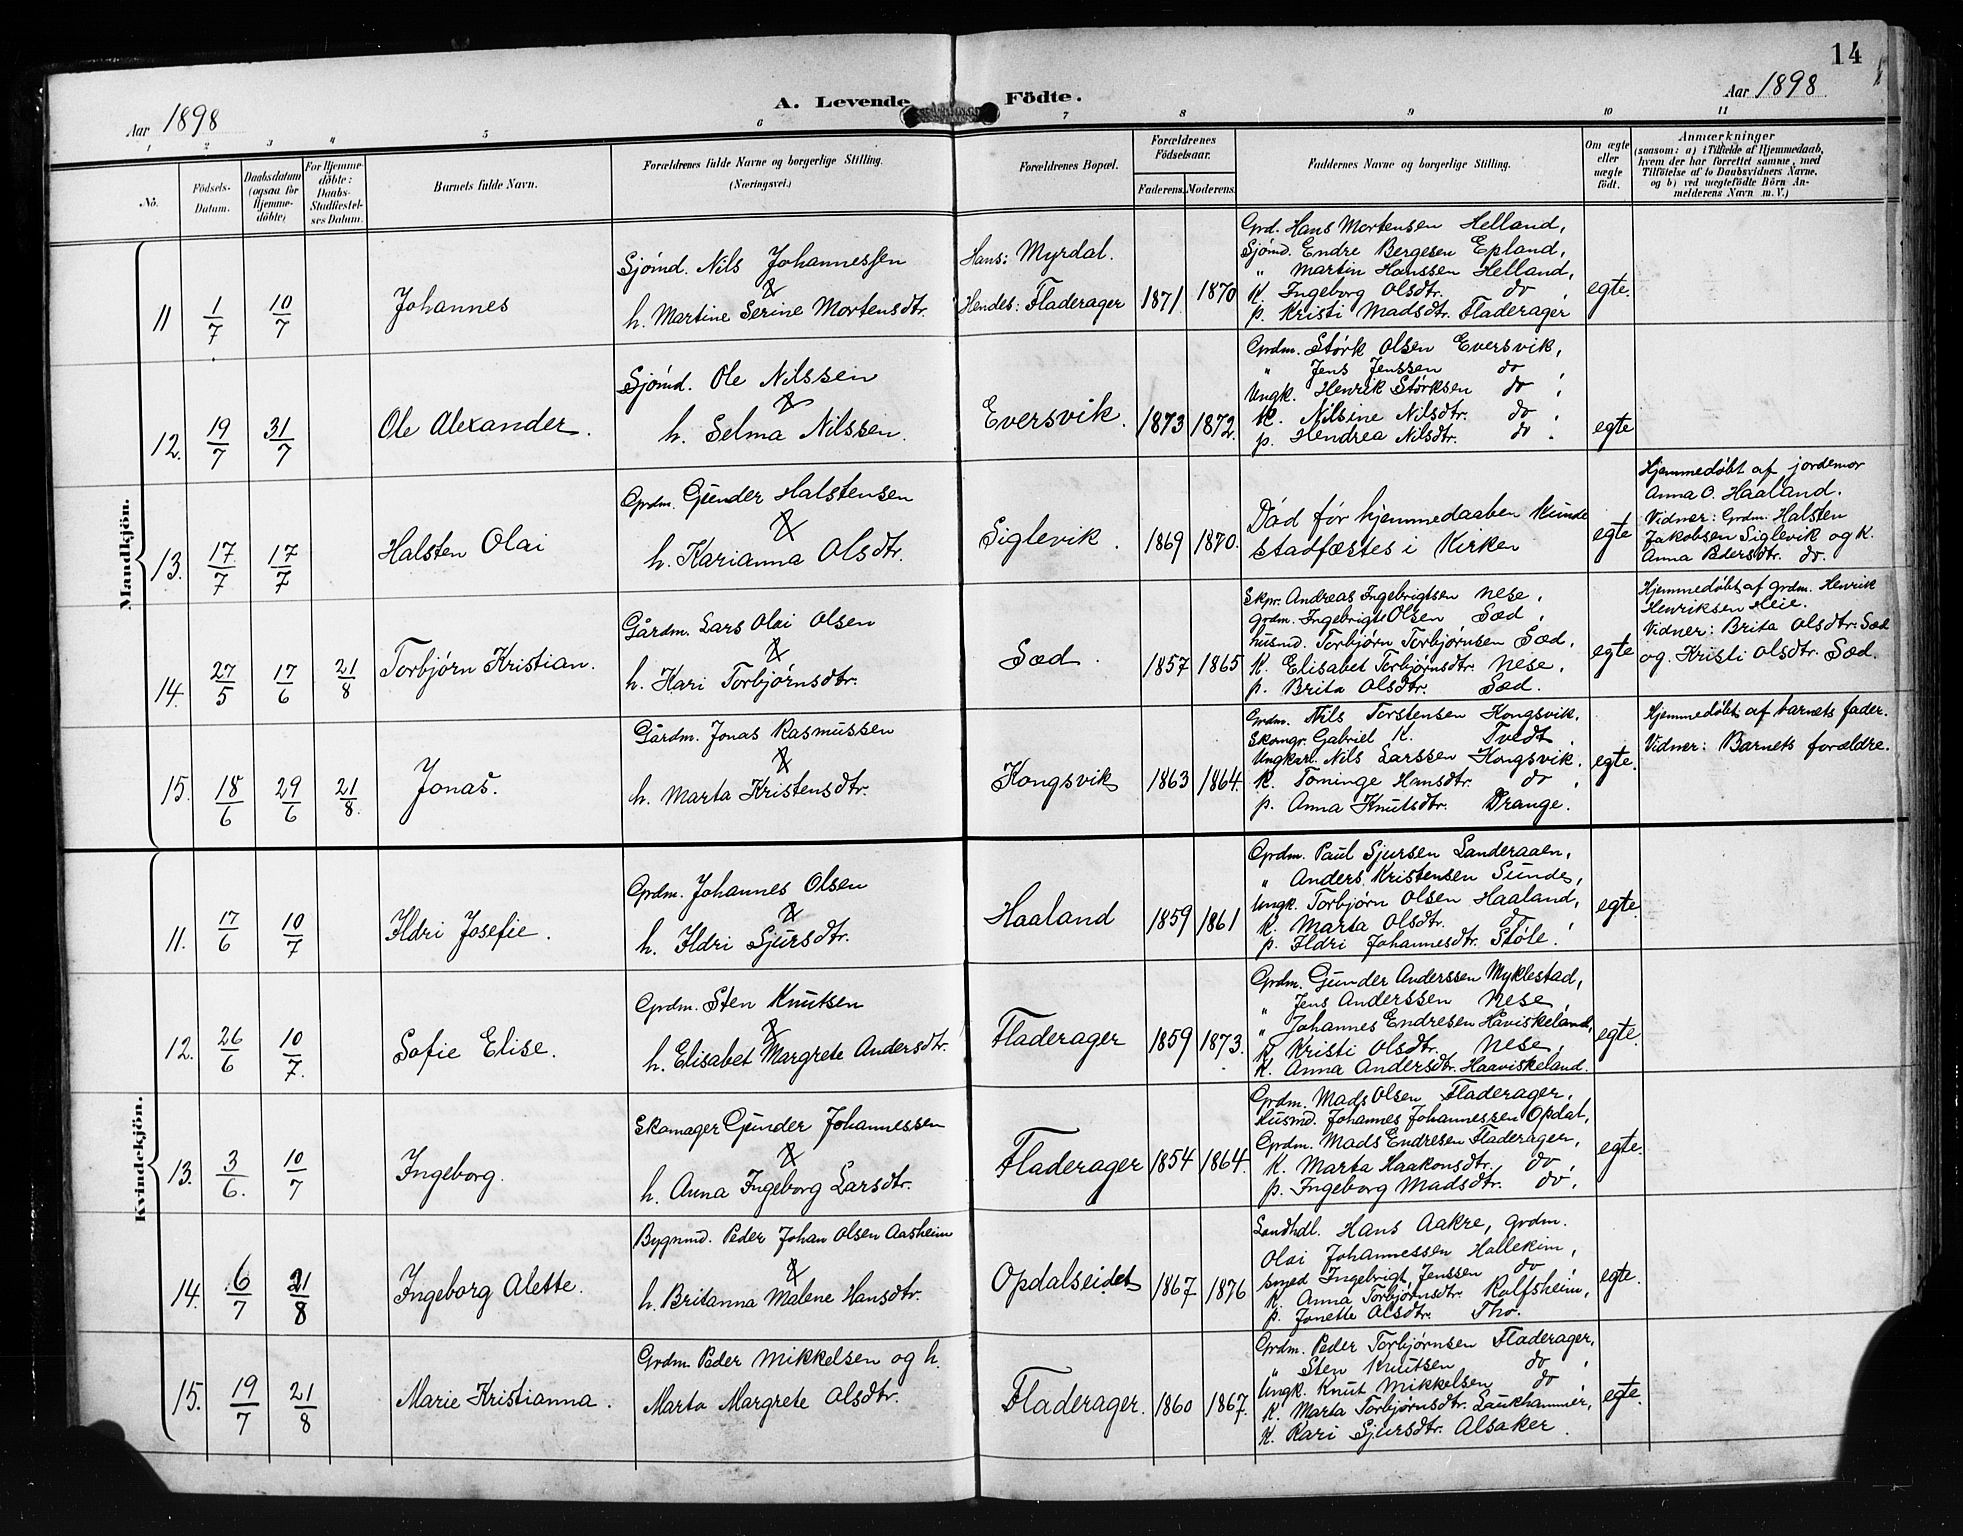 14
Aar 1898
A. Levende Födte.
Aar 1898
1 2 3 4 5 6 7 8 9 10 11
No.
Födsels-Datum.
Daabsdatum (ogsaa for Hjemme-döbte)
For Hjemme-döbte: Daabs-Stadfæstel-ses Datum.
Barnets fulde Navn.
Forældrenes fulde Navne og borgerlige Stilling.
(Næringsvei.)
Forældrenes Bopæl.
Forældrenes Födselsaar.
Faderens. Moderens.
Faddernes Navne og borgerlige Stilling.
Om ægte eller uægte födt.
Anmærkninger
(saasom: a) i Tilfælde af Hjemmedaab,
hvem der har forrettet samme, med
Tilföielse af to Daabsvidners Navne,
og b) ved uægtefödte Börn An-
melderens Navn m. V.)
Mandkjön.
11 1/7 10/7 Johannes
Sjömd. Nils Johannessen
&
h. Martine Serine Mortensdtr.
Hans: Myrdal.
Hendes: Fladerager 1871. 1870
Grd. Hans Mortensen Helland,
Sjömd. Endre Bergesen Epland,
" Martin Hanssen Helland,
K. Ingeborg Olsdtr. do,
p. Kristi Madsdtr. Fladerager
egte.
12. 19/7 31/7 Ole Alexander.
Sjömd. Ole Nilssen
&
h. Selma Nilssen.
Eversvik. 1873 1872.
Grdm. Störk Olsen Eversvik,
" Jens Jenssen do,
Ungk. Henrik Störksen do,
K. Nilsine Nilsdtr. do.
p. Hendrea Nilsdtr. do.
egte
13. 17/7 17/7 Halsten Olai
Grdm. Gunder Halstensen
&
h. Karianna Olsdtr.
Siglevik. 1869 1870.
Död för hjemmedaaben kunde
stadfæstes i Kirken
egte
Hjemmedöbt af jordemor
Anna O. Haaland.
Vidner: Grdm. Halsten
Jakobsen Siglevik og K.
Anna Pedersdtr. do.
14. 27/5 17/6 21/8 Torbjörn Kristian.
Gårdm. Lars Olai Olsen
&
h. Kari Torbjörnsdtr.
Sæd. 1857 1865
Skpr. Andreas Ingebrigtsen Nese,
grdm. Ingebrigt Olsen Sæd,
husmd. Torbjörn Torbjörnsen Sæd,
K. Elisabet Torbjörnsdtr. Nese,
p. Brita Olsdtr. Sæd.
egte
Hjemmedöbt af grdm. Henrik
Henriksen Heie.
Vidner: Brita Olsdtr. Sæd
og Kristi Olsdtr. Sæd.
15. 18/6 29/6 21/8 Jonas.
Gårdm. Jonas Rasmussen
&
h. Marta Kristensdtr.
Kongsvik 1863 1864.
Grdm. Nils Torstensen Kongsvik,
Skomgr. Gabriel K. Tvedt,
Ungkarl. Nils Larssen Kongsvik,
K. Tominge Hansdtr. do,
p. Anna Knutsdtr. Drange.
egte.
Hjemmedöbt af barnets fader.
Vidner: Barnets forældre.
Kvindekjön.
11. 17/6 10/7 Ildri Josefie.
Grdm. Johannes Olsen
&
h. Ildri Sjursdtr.
Haaland 1859 1861
Grdm. Paul Sjursen Landeraaen,
" Anders Kristensen Sunde,
Ungk. Torbjörn Olsen Haaland,
K. Marta Olsdtr. do,
p. Ildri Johannesdtr. Støle.
egte.
12. 26/6 10/7. Sofie Elise.
Grdm. Sten Knutsen
&
h. Elisabet Margrete Andersdtr.
Fladerager 1859 1873.
Grdm. Gunder Anderssen Myklestad,
" Jens Anderssen Nese,
" Johannes Endresen Håviskeland,
K. Kristi Olsdtr. Nese,
K. Anna Andersdtr. Haaviskeland.
egte.
13. 3/6. 10/7 Ingeborg.
Skomager Gunder Johannessen
&
h. Anna Ingeborg Larsdtr.
Fladerager 1854 1864.
Grdm. Mads Olsen Fladerager,
Husmd. Johannes Johannessen Opdal,
Grdm. Mads Endresen Fladerager,
K. Marta Haakonsdtr. do,
p. Ingeborg Madsdtr. do.
egte.
14. 6/7 21/8 Ingeborg Alette.
Bygnmd. Peder Johan Olsen Aasheim
&
h. Britanna Malene Hansdtr.
Opdalseidet 1867 1876
Landhdl. Hans Aakre, grdm.
Olai Johannessen Hallekim,
smed Ingebrigt Jenssen do
K. Anna Torbjörnsdtr. Rolfsheim,
p. Jonette Olsdtr. Tho.
egte.
15. 19/7 21/8 Marie Kristianna.
Grdm. Peder Mikkelsen og h.
Marta Margrete Olsdtr.
Fladerager. 1860 1867.
Grdm. Peder Torbjörnsen Fladerager,
" Sten Knutsen do,
Ungk. Knut Mikkelsen do,
K. Marta Torbjörnsdtr. Laukhammer,
K. Kari Sjursdtr. Alsaker.
egte.